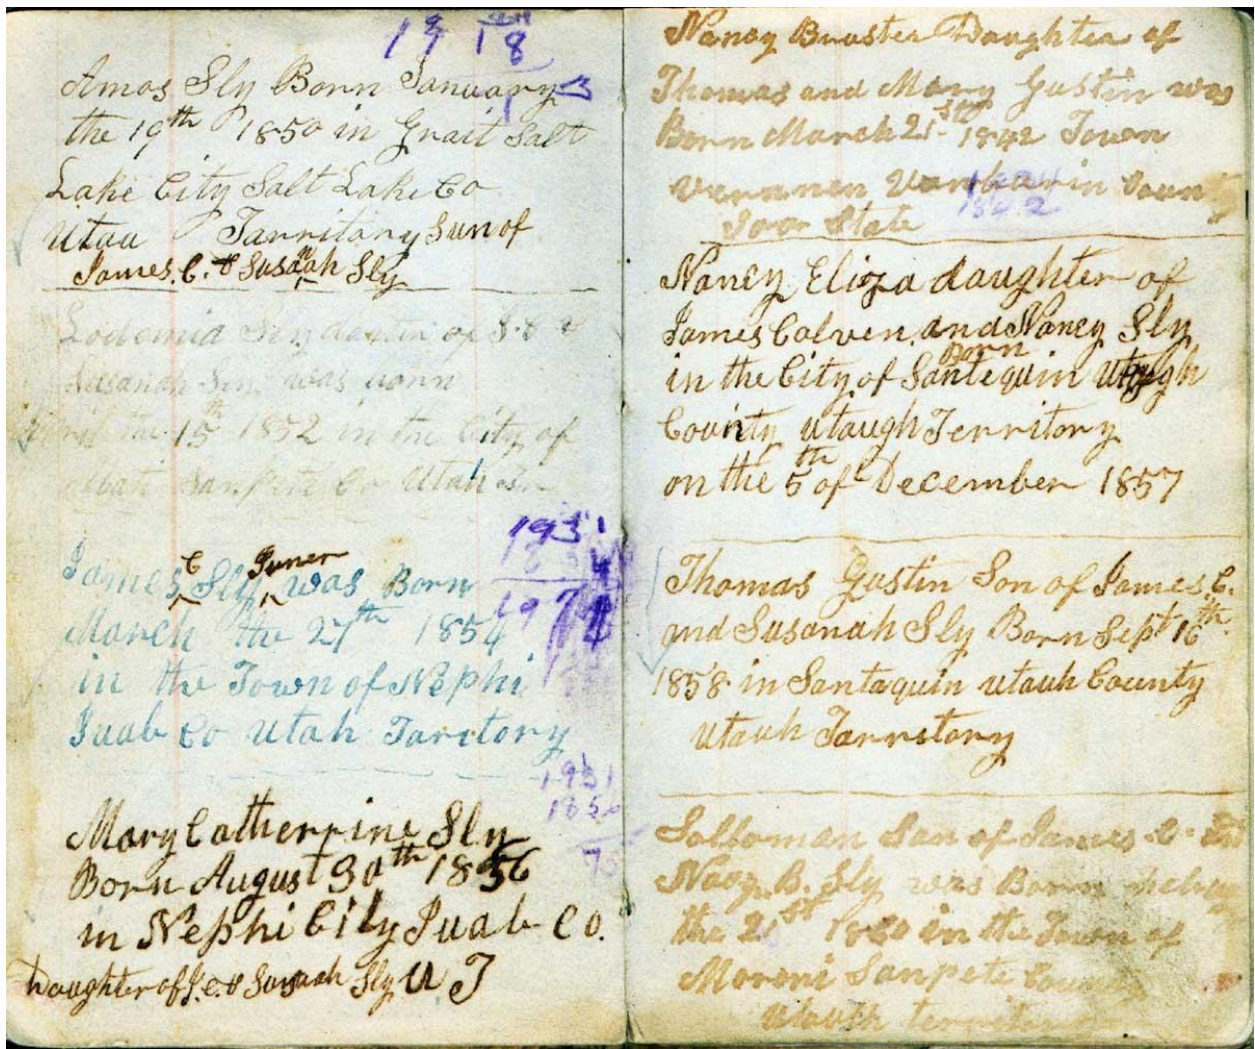 19 18
Amos Sly Born January
the 19th 1850 in Grait Salt
Lake City Salt Lake Co
Utau Tarritory Sun of
James. C. & Susanah Sly
Lodemia Sly daughter of J. C &
Susanah Sly was born
the 15th 1852 in the City of
Sanpete Co Utah
1931
James C Sly Juner was Born
March the 27th 1854
in the Town of Nephi
Juab Co Utah Taritory
1931
185
75
Mary Catherrine Sly
Born August 30th 1856
in Nephi City Juab Co.
Daughter of J. C. & Susanah Sly U T
Nancy Bruster Daughter of
Thomas and Mary Gustin was
Born March 21st 1842 Town
in Coun
State
1842
Nancy Eliza daughter of
James Calven and Nancy Sly
Born
in the City of Santequin Utaugh
County Utaugh Territory
on the 5th of December 1857
Thomas Gustin Son of James. C.
and Susanah Sly Born Sept 16th
1858 in Santaquin Utauh County
Utauh Tarritory
Solloman Son of James C.
B. Sly was Born
the 21st 1860 in the Town of
Moroni Sanpete County
Utauh